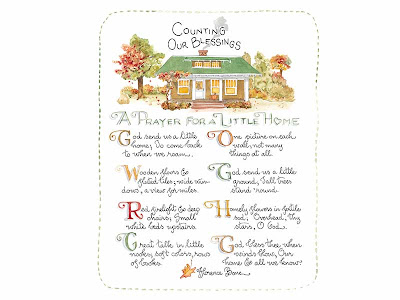 Counting
Our Blessings
A Prayer for a Little Home
God send us a little
home, To come back
to when we roam.
Wooden floors &
fluted tiles, wide win-
dows, a view for miles.
Red firelight & deep
chairs, Small
white beds upstairs.
Great talk in little
nooks, soft colors, rows
of books.
One picture on each
wall, not many
things at all.
God send us a little
ground, Tall trees
stand 'round.
Homely flowers in
sod, Overhead, thy
stars, O God.
God bless thee, when
winds blow, Our
home & all we know.
Florence Bone